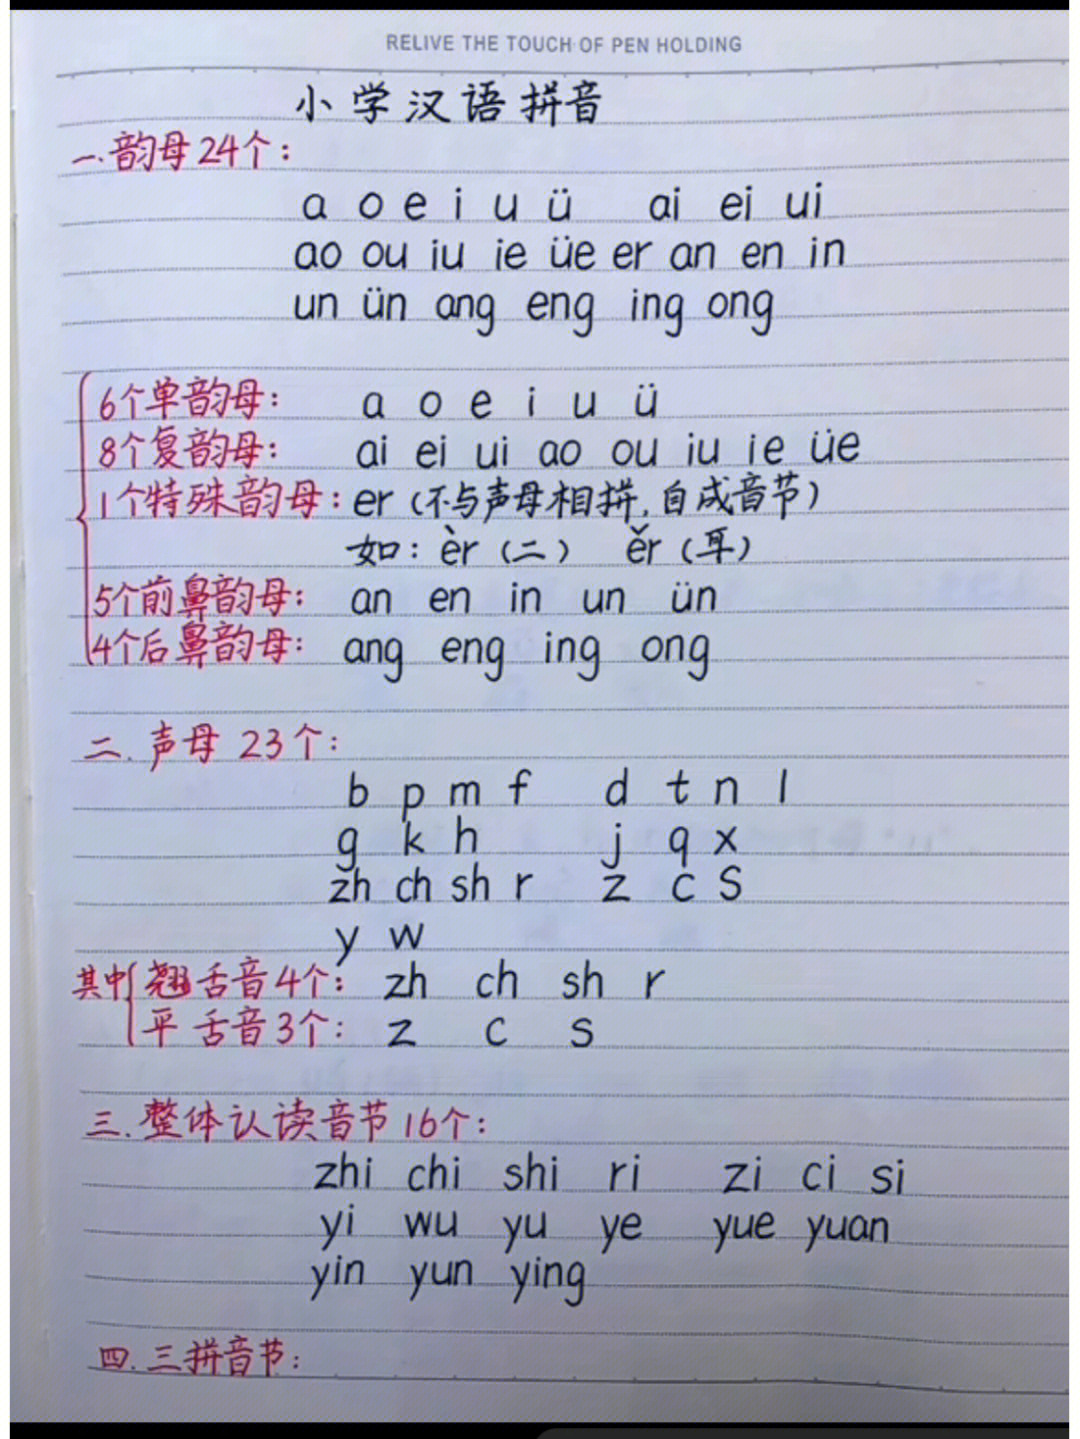 RELIVE THE TOUCH OF PEN HOLDING
小学汉语拼音
一.韵母24个:
a o e i u ü ai ei ui
ao ou iu ie üe er an en in
un ün ang eng ing ong
6个单韵母: a o e i u ü
8个复韵母: ai ei ui ao ou iu ie üe
1个特殊韵母: er (不与声母相拼,自成音节)
如: èr (二) ěr (耳)
5个前鼻韵母: an en in un ün
4个后鼻韵母: ang eng ing ong
二.声母 23个:
b p m f d t n l
g k h j q x
zh ch sh r z c s
y w
其中 翘舌音4个: zh ch sh r
平舌音3个: z c s
三.整体认读音节16个:
zhi chi shi ri zi ci si
yi wu yu ye yue yuan
yin yun ying
四.三拼音节: